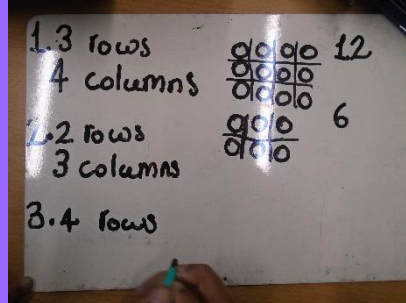 1.3 rows 12
4 columns
2.2 rows 6
3 columns
3.4 rows